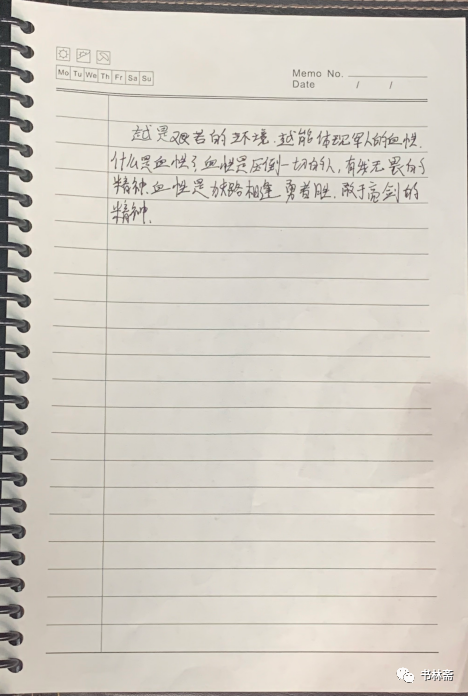 Mo Tu We Th Fr Sa Su
Memo No.
Date / /
越是艰苦的环境.越能体现军人的血性.
什么是血性?血性是压倒一切敌人,有我无畏的
精神.血性是狭路相逢勇者胜.敢于亮剑的
精神.
书林斋